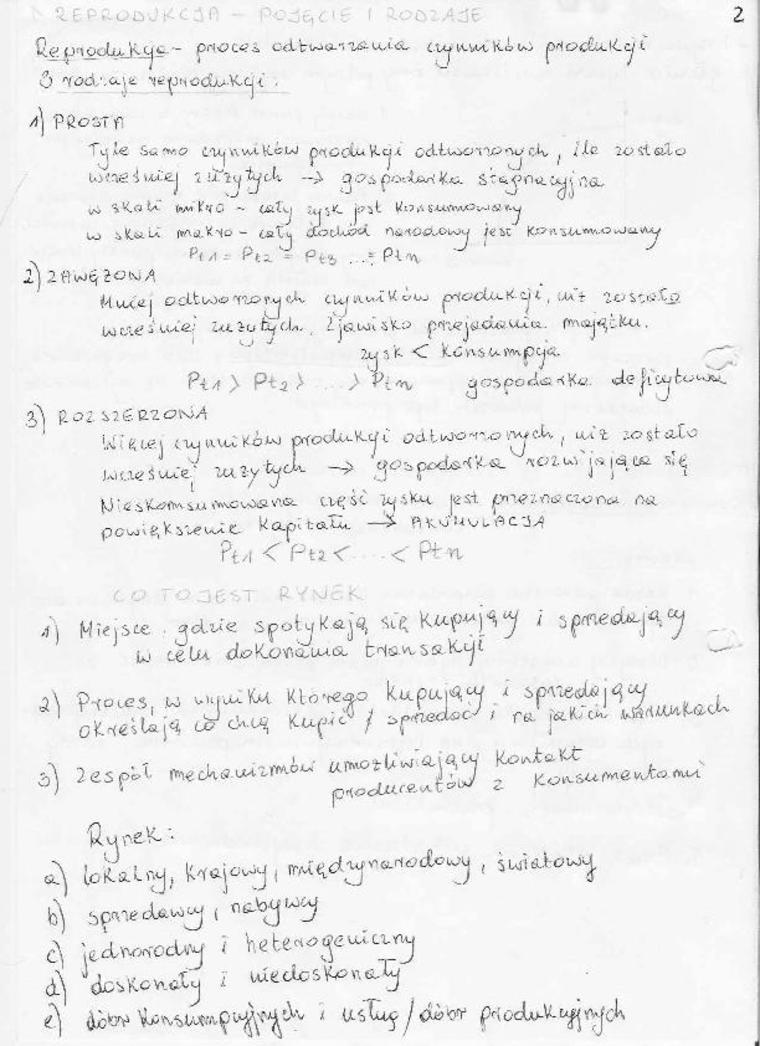 2
REPRODUKCJA – POJĘCIE I RODZAJE
Reprodukcja – proces odtwarzania czynników produkcji
3 rodzaje reprodukcji:
1) PROSTA
Tyle samo czynników produkcji odtworzonych, ile zostało
wcześniej zużytych → gospodarka stagnacyjna
w skali mikro – cały zysk jest konsumowany
w skali makro – cały dochód narodowy jest konsumowany
Pt1 = Pt2 = Pt3 ... = Ptn
2) ZAWĘŻONA
Mniej odtworzonych czynników produkcji, niż zostało
wcześniej zużytych. Zjawisko przejadania majątku.
zysk < konsumpcja
Pt1 > Pt2 > ... > Ptn gospodarka deficytowa
3) ROZSZERZONA
Więcej czynników produkcji odtworzonych, niż zostało
wcześniej zużytych → gospodarka rozwijająca się
Nieskomsumowana część zysku jest przeznaczona na
powiększenie kapitału → AKUMULACJA
Pt1 < Pt2 < .... < Ptn
CO TO JEST RYNEK
1) Miejsce gdzie spotykają się kupujący i sprzedający
w celu dokonania transakcji
2) Proces, w wyniku którego kupujący i sprzedający
określają co chcą kupić / sprzedać i na jakich warunkach
3) Zespół mechanizmów umożliwiający kontakt
producentów z konsumentami
Rynek:
a) lokalny, krajowy, międzynarodowy, światowy
b) sprzedawcy, nabywcy
c) jednorodny i heterogeniczny
d) doskonały i niedoskonały
e) dóbr konsumpcyjnych i usług / dóbr produkcyjnych